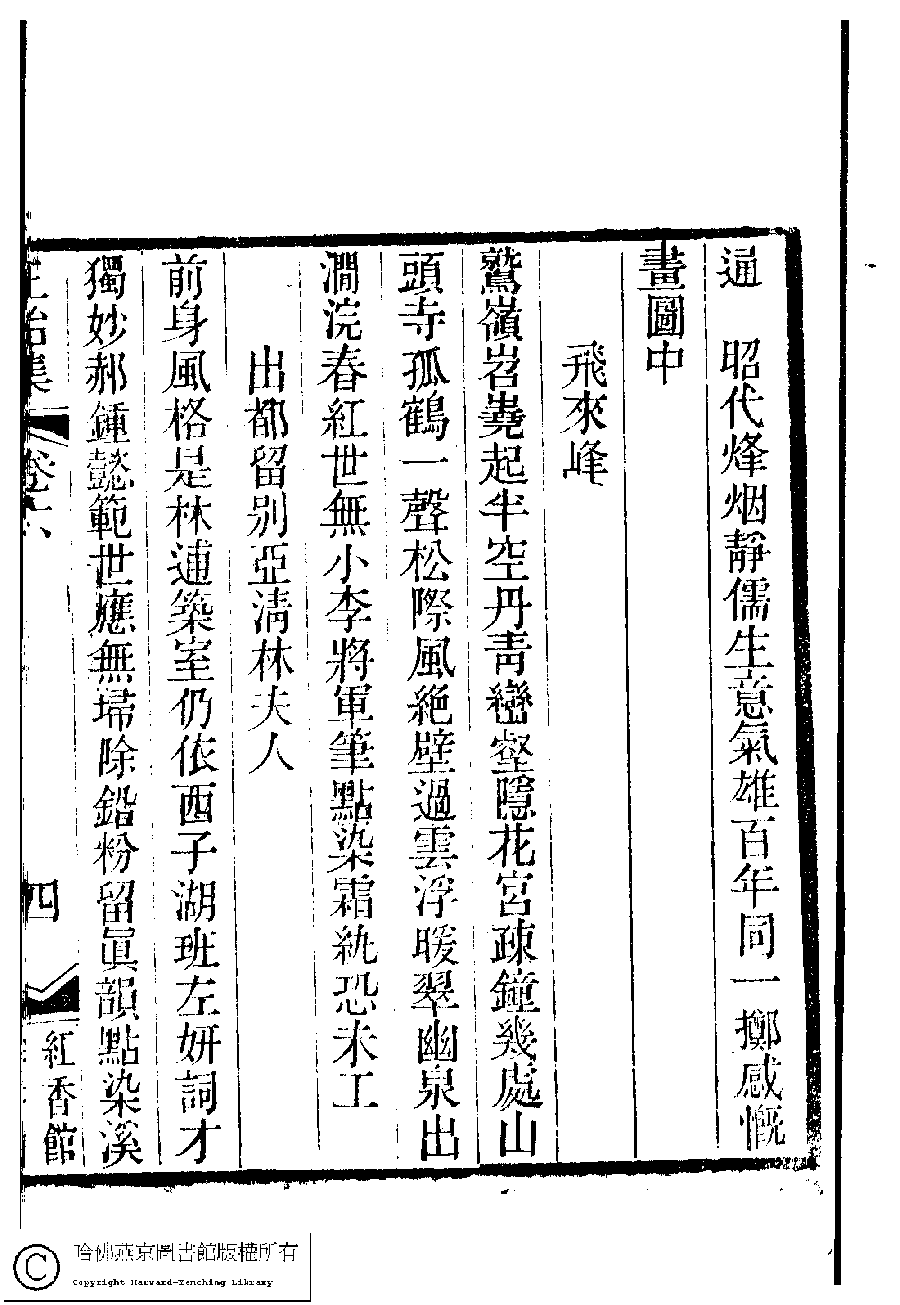 通　昭代烽烟靜儒生意氣雄百年同一擲感慨
畫圖中
飛來峰
鷲嶺岧嶤起半空丹靑巒壑隱花宮疎鐘幾處山
頭寺孤鶴一聲松際風絶壁過雲浮暖翠幽泉出
澗浣春紅世無小李將軍筆點染霜紈恐未工
出都留别亞淸林夫人
前身風格是林逋築室仍依西子湖班左妍詞才
獨妙郝鍾懿範世應無埽除鉛粉留眞韻點染溪
正始集
卷六
四
紅香館
哈佛燕京圖書館版權所有
Copyright Harvard-Yenching Library